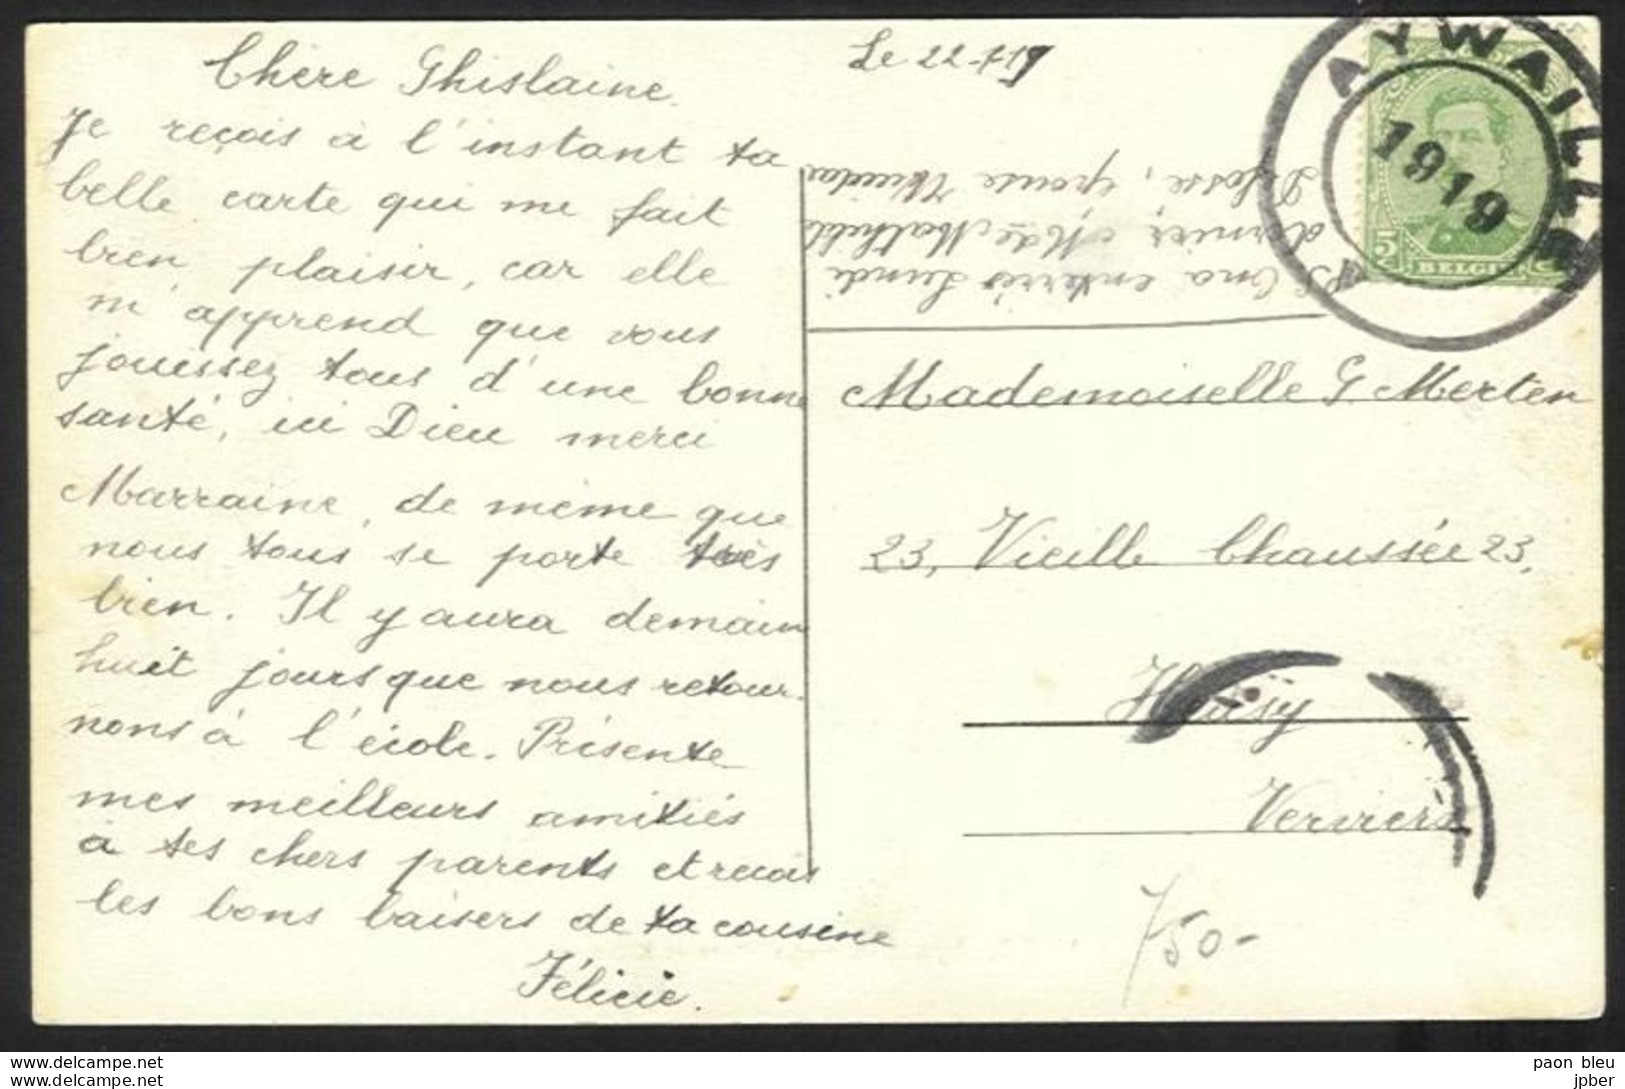 Chère Ghislaine.
Je reçois à l'instant ta
belle carte qui me fait
bien plaisir, car elle
m'apprend que vous
jouissez tous d'une bonne
santé, ici Dieu merci
Marraine, de même que
nous tous se porte très
bien. Il y aura demain
huit jours que nous retour-
nons à l'école. Présente
mes meilleurs amitiés
à tes chers parents et reçois
les bons baisers de ta cousine
Félicie.
Le 22-
PS. On a enterrés Lundi
dernier, Mde Mathild
épouse
AYWAILLE
1919
5
BELGI
Mademoiselle G Merten
23, Vieille Chaussée 23.
Heusy
Verviers
750-
www.delcampe.net
paon_bleu
jpber